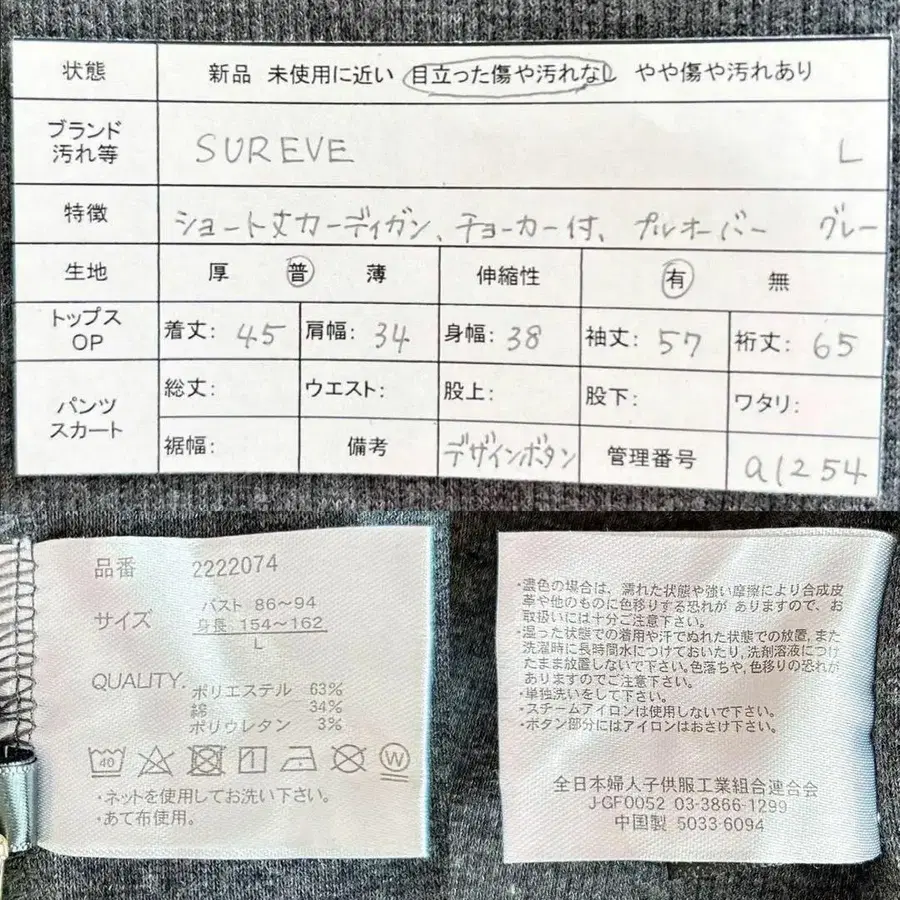 状態 新品 未使用に近い 目立った傷や汚れなし やや傷や汚れあり
ブランド
汚れ等 SUREVE L
特徴 ショート丈カーディガン、チョーカー付、プルオーバー グレー
生地 厚 普 薄 伸縮性 有 無
トップス
OP 着丈: 45 肩幅: 34 身幅: 38 袖丈: 57 裄丈: 65
パンツ
スカート 総丈: ウエスト: 股上: 股下: ワタリ:
裾幅: 備考 デザインボタン 管理番号 a1254
品番 2222074
サイズ バスト 86〜94
身長 154〜162
L
QUALITY. ポリエステル 63%
綿 34%
ポリウレタン 3%
40 1 W
・ネットを使用してお洗い下さい。
・あて布使用。
・濃色の場合は、濡れた状態や強い摩擦により合成皮
革や他のものに色移りする恐れが ありますので、お
取扱いには十分ご注意下さい。
・湿った状態での着用や汗でぬれた状態での放置、また
洗濯時に長時間水につけておいたり、洗剤溶液につけ
たまま放置しないで下さい。色落ちや、色移りの恐れが
ありますのでご注意下さい。
・単独洗いをして下さい。
・スチームアイロンは使用しないで下さい。
・ボタン部分にはアイロンはおさけ下さい。
全日本婦人子供服工業組合連合会
J-GF0052 03-3866-1299
中国製 5033-6094